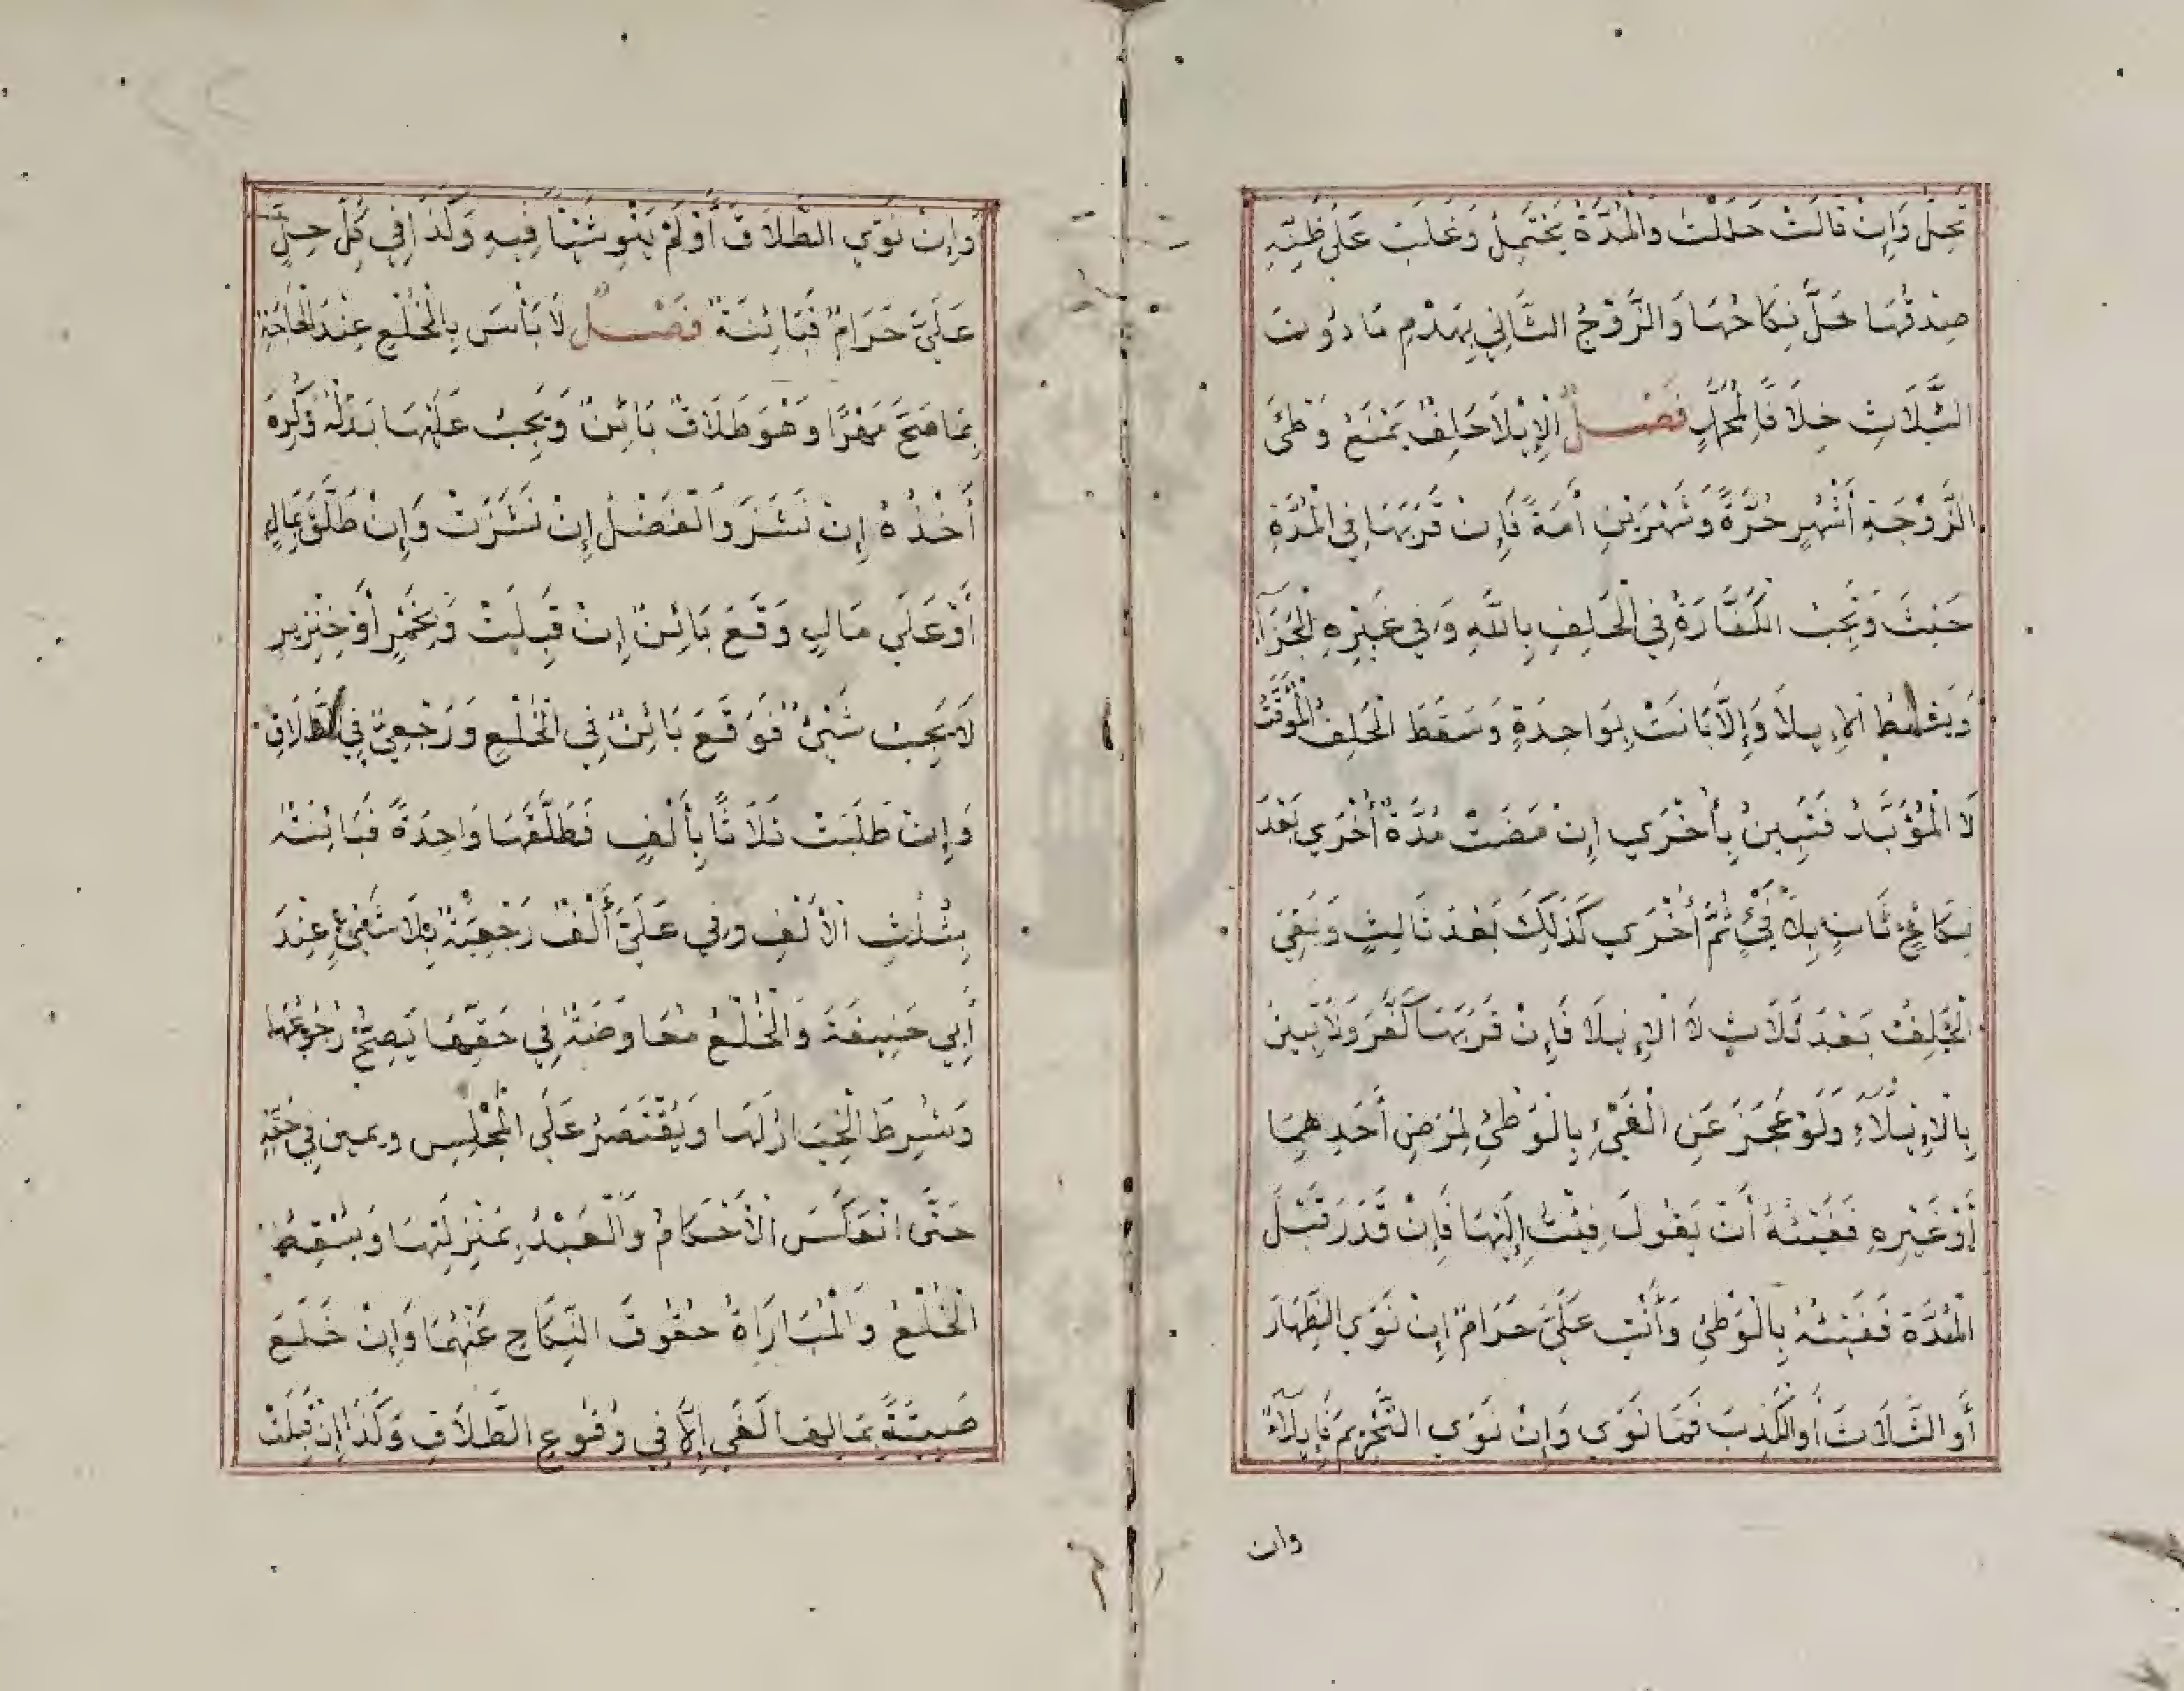 تَحِلَّ وَإِنْ قَالَتْ حَلَلْتُ وَالْمُدَّةُ تَحْتَمِلُ وَغَلَبَ عَلَى ظَنِّهِ
صِدْقُهَا حَلَّ نِكَاحُهَا وَالزَّوْجُ الثَّانِي يَهْدِمُ مَا دُونَ
الثَّلَاثِ خِلَافًا لِمُحَمَّدٍ فَصْلٌ الْإِيْلَا حَلِفٌ يَمْنَعُ وَطْئَ
الزَّوْجَةِ أَشْهُرٍ حُرَّةً وَشَهْرَيْنِ أَمَةً فَإِنْ قَرَبَهَا فِي الْمُدَّةِ
حَنِثَ وَتَجِبُ الْكَفَّارَةُ فِي الْحَلِفِ بِاللَّهِ وَفِي غَيْرِهِ الْجَزَآءُ
وَيَسْقُطُ الْإِيلَا وَإِلَّا بَانَتْ بِوَاحِدَةٍ وَسَقَطَ الْحَلِفُ الْمُوَقَّتُ
لَا الْمُؤَبَّدُ فَتَبِينُ بِأُخْرَي إِنْ مَضَتْ مُدَّةٌ أُخْرَي بَعْدَ
نِكَاحٍ ثَانٍ بِلَا فَيْءٍ ثُمَّ أُخْرَي كَذَلِكَ بَعْدَ ثَالِثٍ وَبَقِيَ
الْحَلِفُ بَعْدَ ثَلَاثٍ لَا الْإِيْلَا فَإِنْ قَرَبَهَا كَفَّرَ وَلَا تَبِينُ
بِالْإِيْلَآءِ وَلَوْ عَجَزَ عَنِ الْفَيْءِ بِالْوَطْئِ لِمَرَضِ أَحَدِهِمَا
أَوْ غَيْرِهِ فَفَيْئُهُ أَنْ يَقُولَ فِئْتُ إِلَيْهَا فَإِنْ قَدَرَ قَبْلَ
الْمُدَّةِ فَفَيْئُهُ بِالْوَطْئِ وَأَنْتِ عَلَيَّ حَرَامٌ إِنْ نَوَي الظِّهَارَ
أَوِ الثَّلَاثَ أَوِ الْكَذِبَ فَمَا نَوَي وَإِنْ نَوَي التَّحْرِيمَ فَإِيلَآءٌ
وان
وَإِنْ نَوَي الطَّلَاقَ أَوْ لَمْ يَنْوِ شَيْئًا فِيهِ وَكَذَا فِي كُلُّ حِلٍّ
عَلَيَّ حَرَامٌ فَبَائِنَةٌ فَصْلٌ لَا بَأْسَ بِالْخُلْعِ عِنْدَ الْحَاجَةِ
بِمَا صَحَّ مَهْرًا وَهُوَ طَلَاقٌ بَائِنٌ وَيَجِبُ عَلَيْهَا بَدَلُهُ وَكُرِهَ
أَخْذُهُ إِنْ نَشَزَ وَالْفَضْلُ إِنْ نَشَزَتْ وَإِنْ طَلَّقَ بِمَالٍ
أَوْ عَلَي مَالٍ وَقَعَ بَائِنٌ إِنْ قَبِلَتْ وَبِخَمْرٍ أَوْ خِنْزِيرٍ
لَا يَجِبُ شَيْئٌ فَوَقَعَ بَائِنٌ فِي الْخُلْعِ وَرَجْعِيٌّ فِي الطَّلَاقِ
وَإِنْ طَلَبَتْ ثَلَاثًا بِأَلْفٍ فَطَلَّقَهَا وَاحِدَةً فَبَائِنَتْ
بِثُلُثِ الْأَلْفِ وَفِي عَلَيَّ أَلْفٌ رَجْعِيَّةٌ بِلَا شَيْئٍ عِنْدَ
أَبِي حَنِيفَةَ وَالْخُلْعُ مُعَاوَضَةٌ فِي حَقِّهَا يَصِحُّ رُجُوعُهَا
وَشُرِطَ الْخِيَارُ لَهَا وَيُقْتَصَرُ عَلَى الْمَجْلِسِ ويمين فِي حَقِّهِ
حَتَّى انْعَكَسَ الْأَحْكَامُ وَالْعَبْدُ بِمَنْزِلَتِهَا وَيُسْقِطُ
الْخُلْعُ وَالْمُبَارَاةُ حُقُوقَ النِّكَاحِ عَنْهُمَا وَإِنْ خَلَعَ
صَبِيَّةً بِمَالِهَا لَغَي إِلَّا فِي وُقُوعِ الطَّلَاقِ وَكَذَا إِنْ قَبِلَتْ